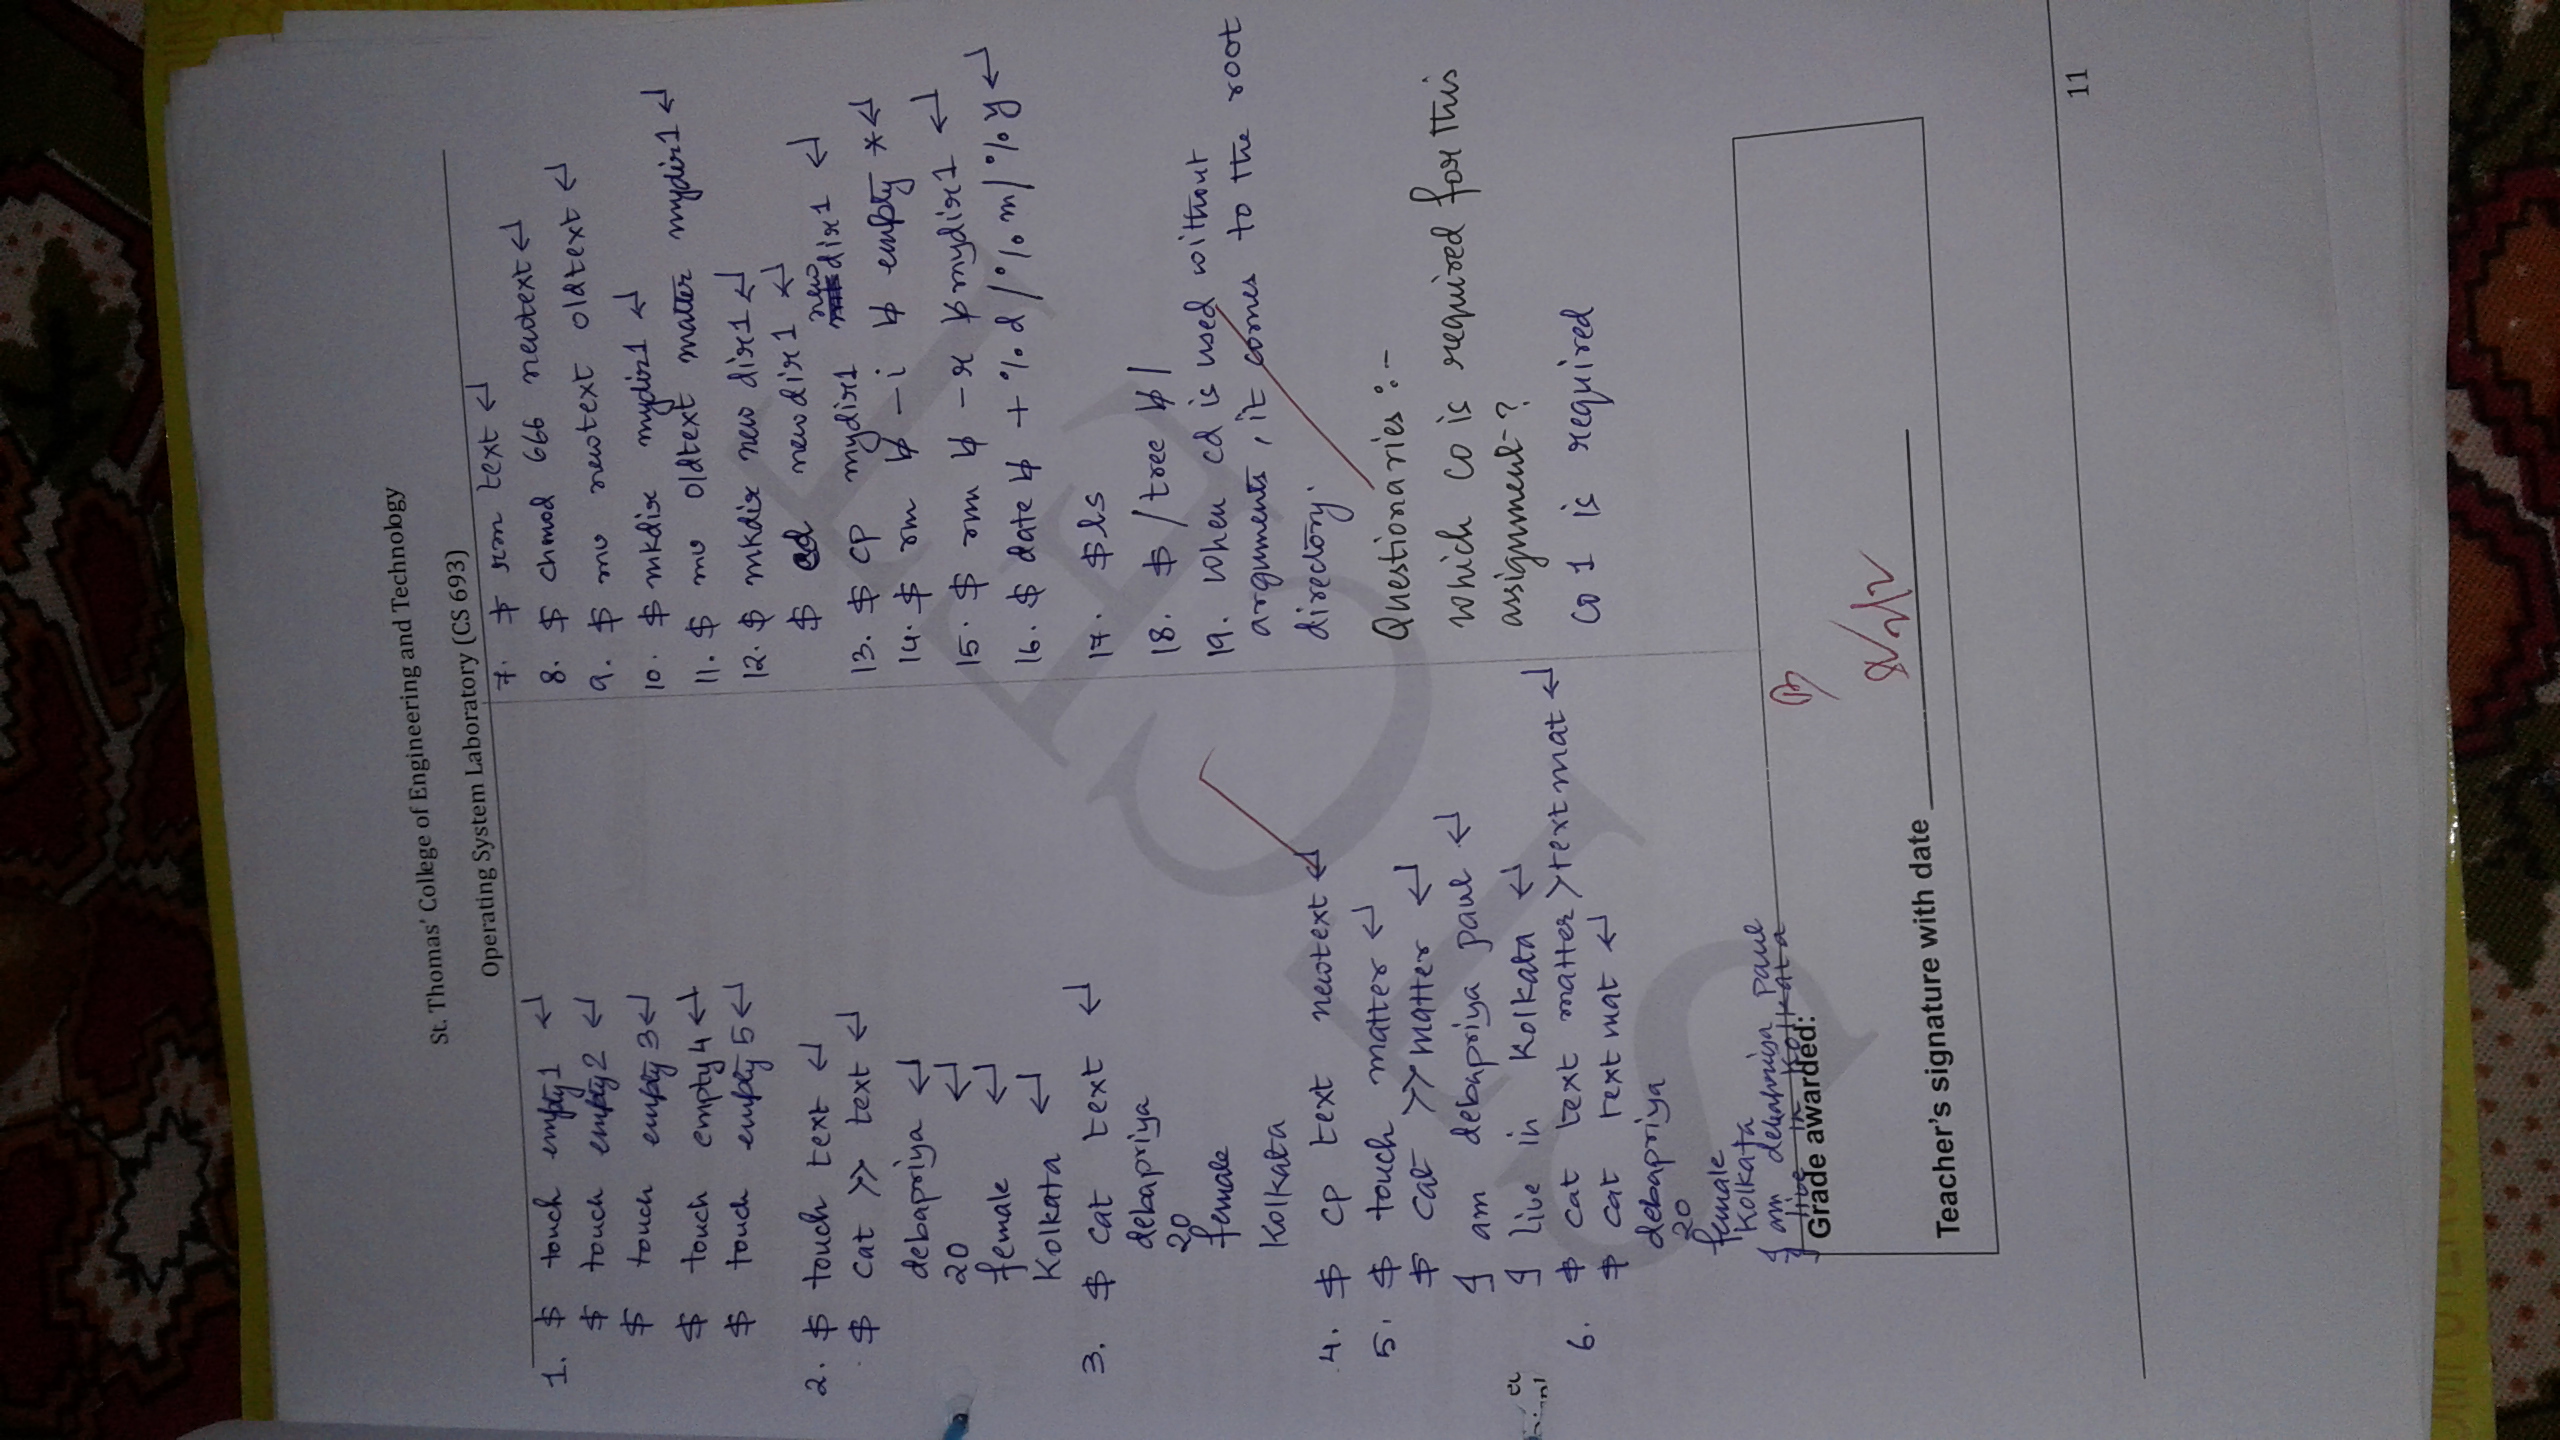 St. Thomas' College of Engineering and Technology
Operating System Laboratory (CS 693)
1. $ touch empty1 ↵
$ touch empty2 ↵
$ touch empty3 ↵
$ touch empty4 ↵
$ touch empty5 ↵
2. $ touch text ↵
$ cat >> text ↵
debapriya ↵
20 ↵
female ↵
Kolkata ↵
3. $ cat text ↵
debapriya
20
female
Kolkata
4. $ cp text newtext ↵
5. $ touch matter ↵
$ cat >> matter ↵
I am debapriya paul ↵
I live in Kolkata ↵
6. $ cat text matter > textmat ↵
$ cat textmat ↵
debapriya
20
female
Kolkata
I am debapriya paul
I live in Kolkata
7. $ rm text ↵
8. $ chmod 666 newtext ↵
9. $ mv newtext oldtext ↵
10. $ mkdir mydir1 ↵
11. $ mv oldtext matter mydir1 ↵
12. $ mkdir new dir1 ↵
$ cd newdir1 ↵
13. $ cp mydir1 newdir1 ↵
14. $ rm ƀ -i ƀ empty * ↵
15. $ rm ƀ -r ƀ mydir1 ↵
16. $ date ƀ + %d/%m/%y ↵
17. $ls
18. $ /tree ƀ/
19. When cd is used without
arguments, it comes to the root
directory.
Questionaries :-
which CO is required for this
assignment-?
CO 1 is required
Grade awarded: B
Teacher's signature with date 2/2
11
STCET